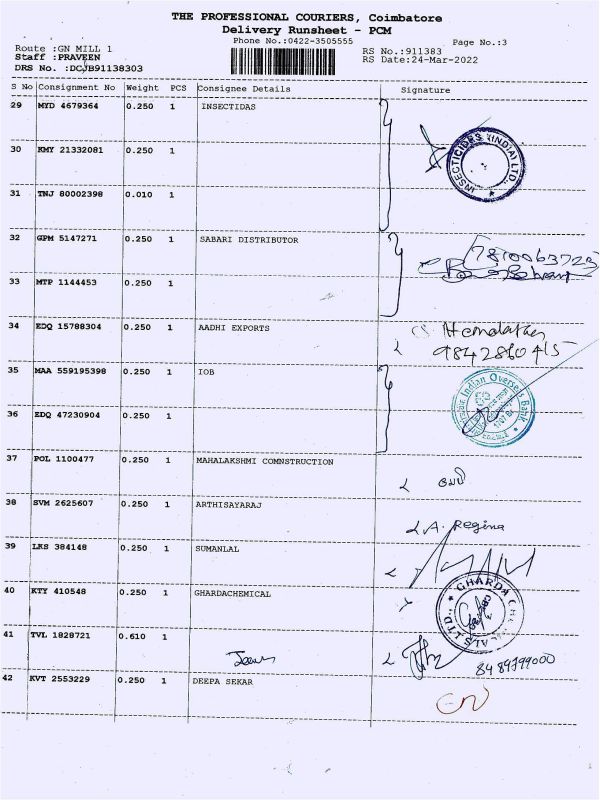 THE PROFESSIONAL COURIERS, Coimbatore
Delivery Runsheet - PCM
Phone No.:0422-3505555
Page No.:3
Route :GN MILL 1
Staff :PRAVEEN
DRS No. :DCJB91138303
RS No.:911383
RS Date:24-Mar-2022
S No Consignment No Weight PCS Consignee Details Signature
29 MYD 4679364 0.250 1 INSECTIDAS
INSECTICIDES (INDIA) LTD.
30 KMY 21332081 0.250 1
31 TNJ 80002398 0.010 1
32 GPM 5147271 0.250 1 SABARI DISTRIBUTOR
7810063723
33 MTP 1144453 0.250 1
34 EDQ 15788304 0.250 1 AADHI EXPORTS
9842860415
35 MAA 559195398 0.250 1 IOB
Indian Overseas Bank
36 EDQ 47230904 0.250 1
37 POL 1100477 0.250 1 MAHALAKSHMI COMNSTRUCTION
38 SVM 2625607 0.250 1 ARTHISAYARAJ
A. Regina
39 LKS 384148 0.250 1 SUMANLAL
40 KTY 410548 0.250 1 GHARDACHEMICAL
GHARDA
41 TVL 1828721 0.610 1
8489799000
42 KVT 2553229 0.250 1 DEEPA SEKAR